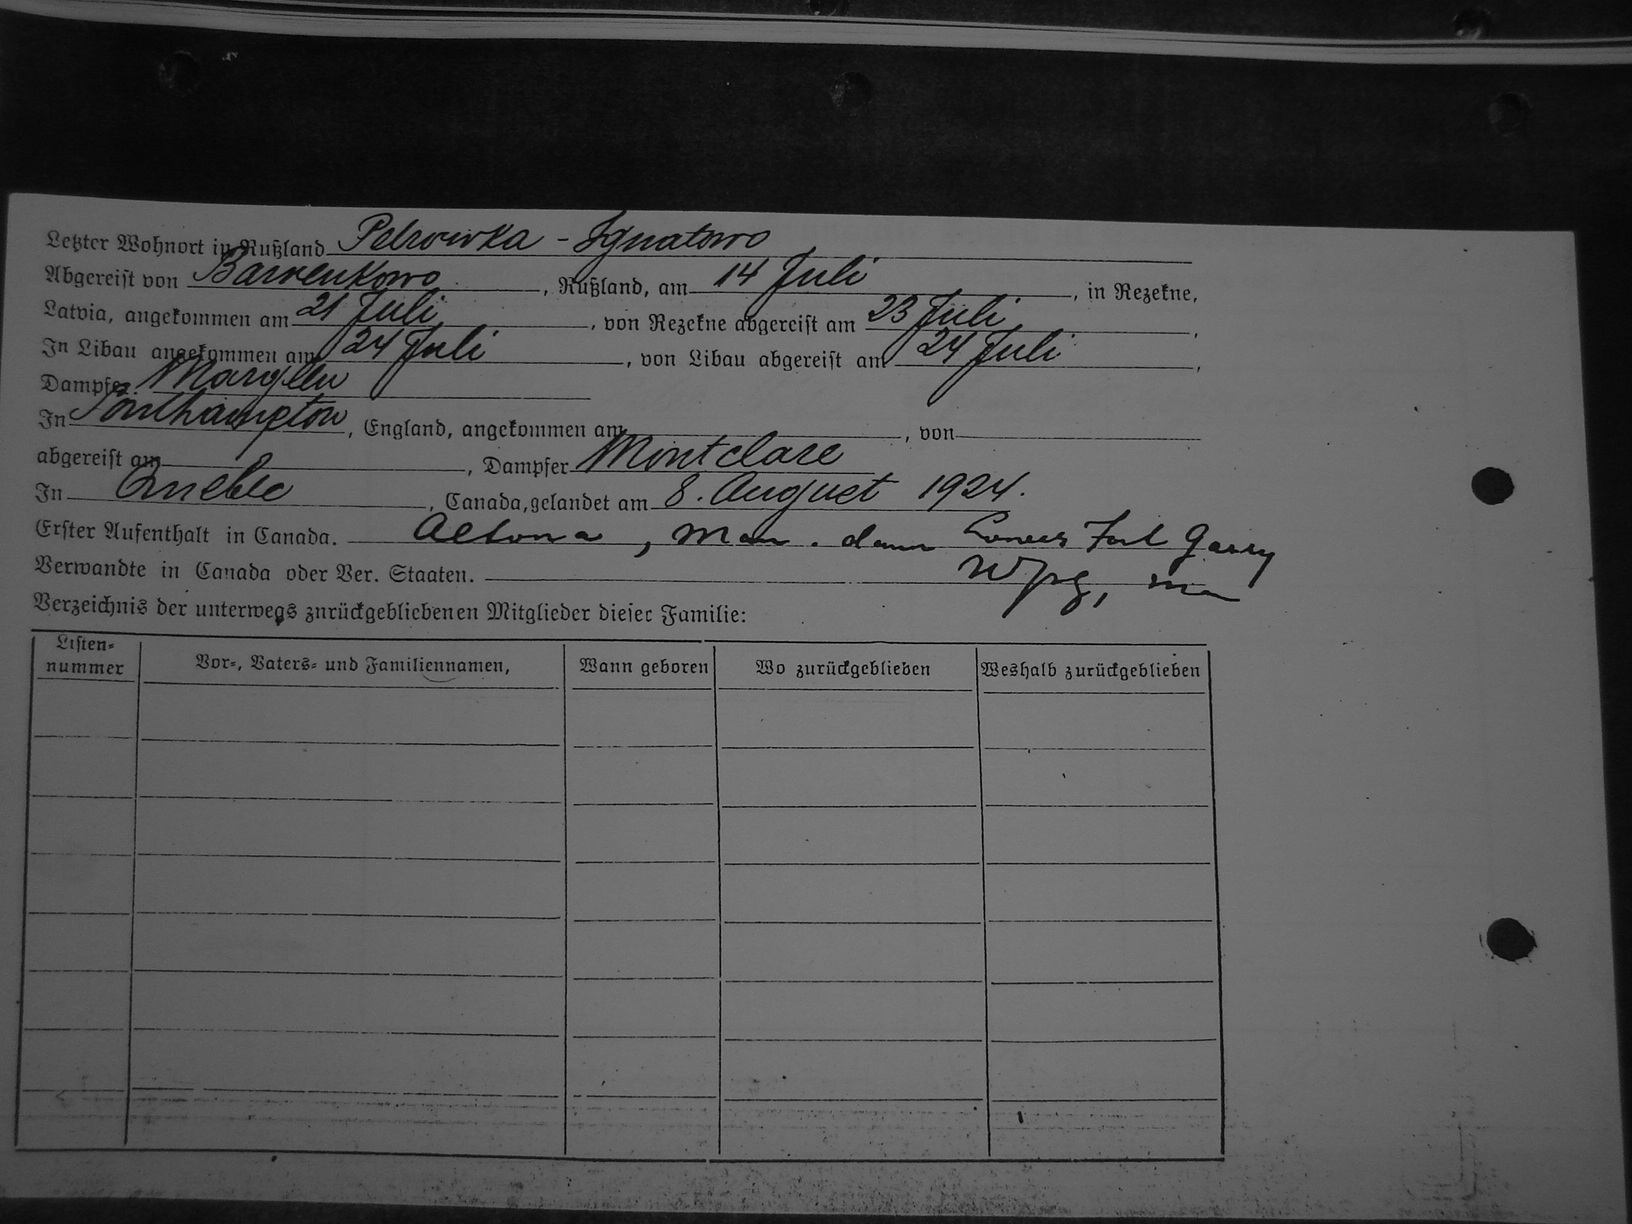 Letzter Wohnort in Rußland Petrowka - Ignatowo
Abgereist von Barwenkowo, Rußland, am 14 Juli, in Rezekne,
Latvia, angekommen am 21 Juli, von Rezekne abgereist am 23 Juli,
In Libau angekommen am 24 Juli, von Libau abgereist am 24 Juli,
Dampfer
In Southampton, England, angekommen am , von
abgereist am , Dampfer Montclare
In Quebec, Canada, gelandet am 8. August 1924.
Erster Aufenthalt in Canada. Altona, Man. dann Lower Fort Garry
Verwandte in Canada oder Ver. Staaten. Wpg, Man
Verzeichnis der unterwegs zurückgebliebenen Mitglieder dieser Familie:
Listen-
nummer Vor-, Vaters- und Familiennamen, Wann geboren Wo zurückgeblieben Weshalb zurückgeblieben